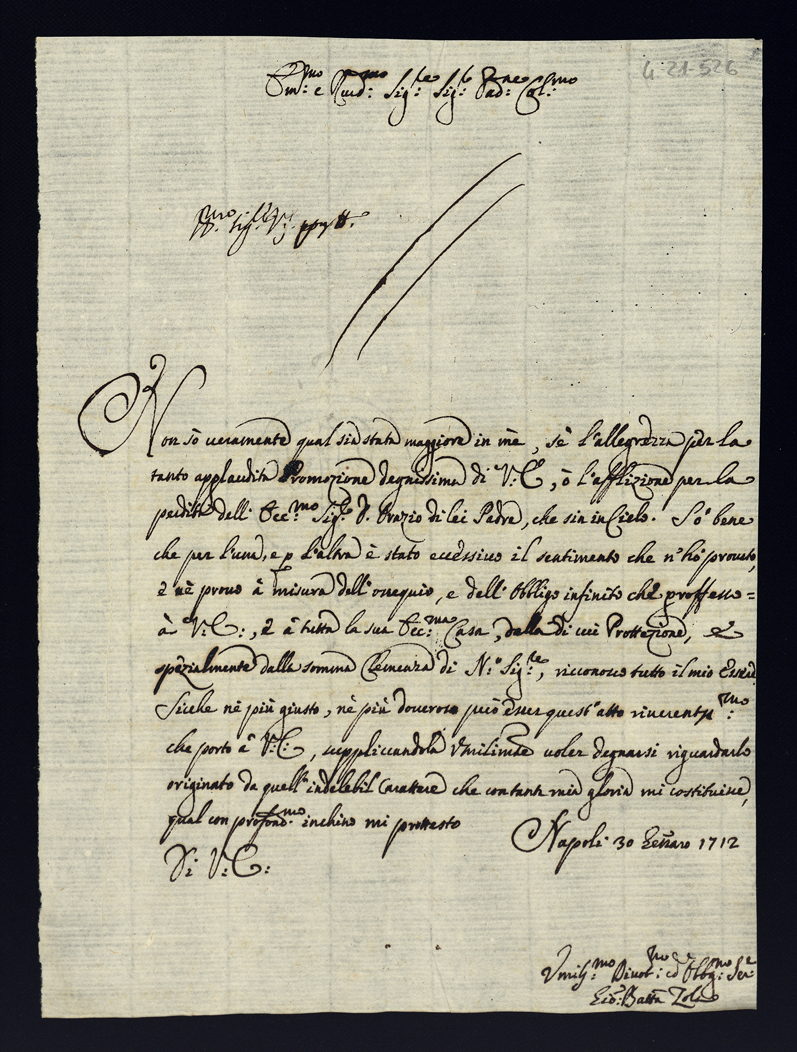 4-21-526
Em:mo e Rund:mo Sig:re Sig:re Pad:ne Col:mo
Non sò ueramente qual sia stata maggiore in mè, sè l'allegrezza per la
tanto applaudita Promozione degnissima di V:E, ò l'afflizione per la
perdita dell' Ecc:mo Sig:r D. Orazio di lei Padre, che sia in Cielo. Sò bene
che per l'una, e p l'altra è stato eccessiuo il sentimento che n'hò prouato,
e nè prouo à misura dell' ossequio, e dell' Obbligo infinito che proffesso=
à V:E:, e à tutta la sua Ecc:ma Casa, dalla di cui Protezione, e
spezialmente dalla somma Clemenza di N:o Sig:re, riconosco tutto il mio Essere
Sicche nè più giusto, nè più doueroso può esser quest'atto riuerentis:mo
che porto à V:E, suppliccandola Vmilimte uoler degnarsi riguardarlo
originato da quell' indelebil Carattere che con tanta mia gloria mi costituisce,
qual con profond:mo inchino mi protesto
Napoli 30 Gennaro 1712
Di V:E:
Vmilis:mo Diuot:mo ed Obbg:mo Ser:e
Gio: Batta Zoli